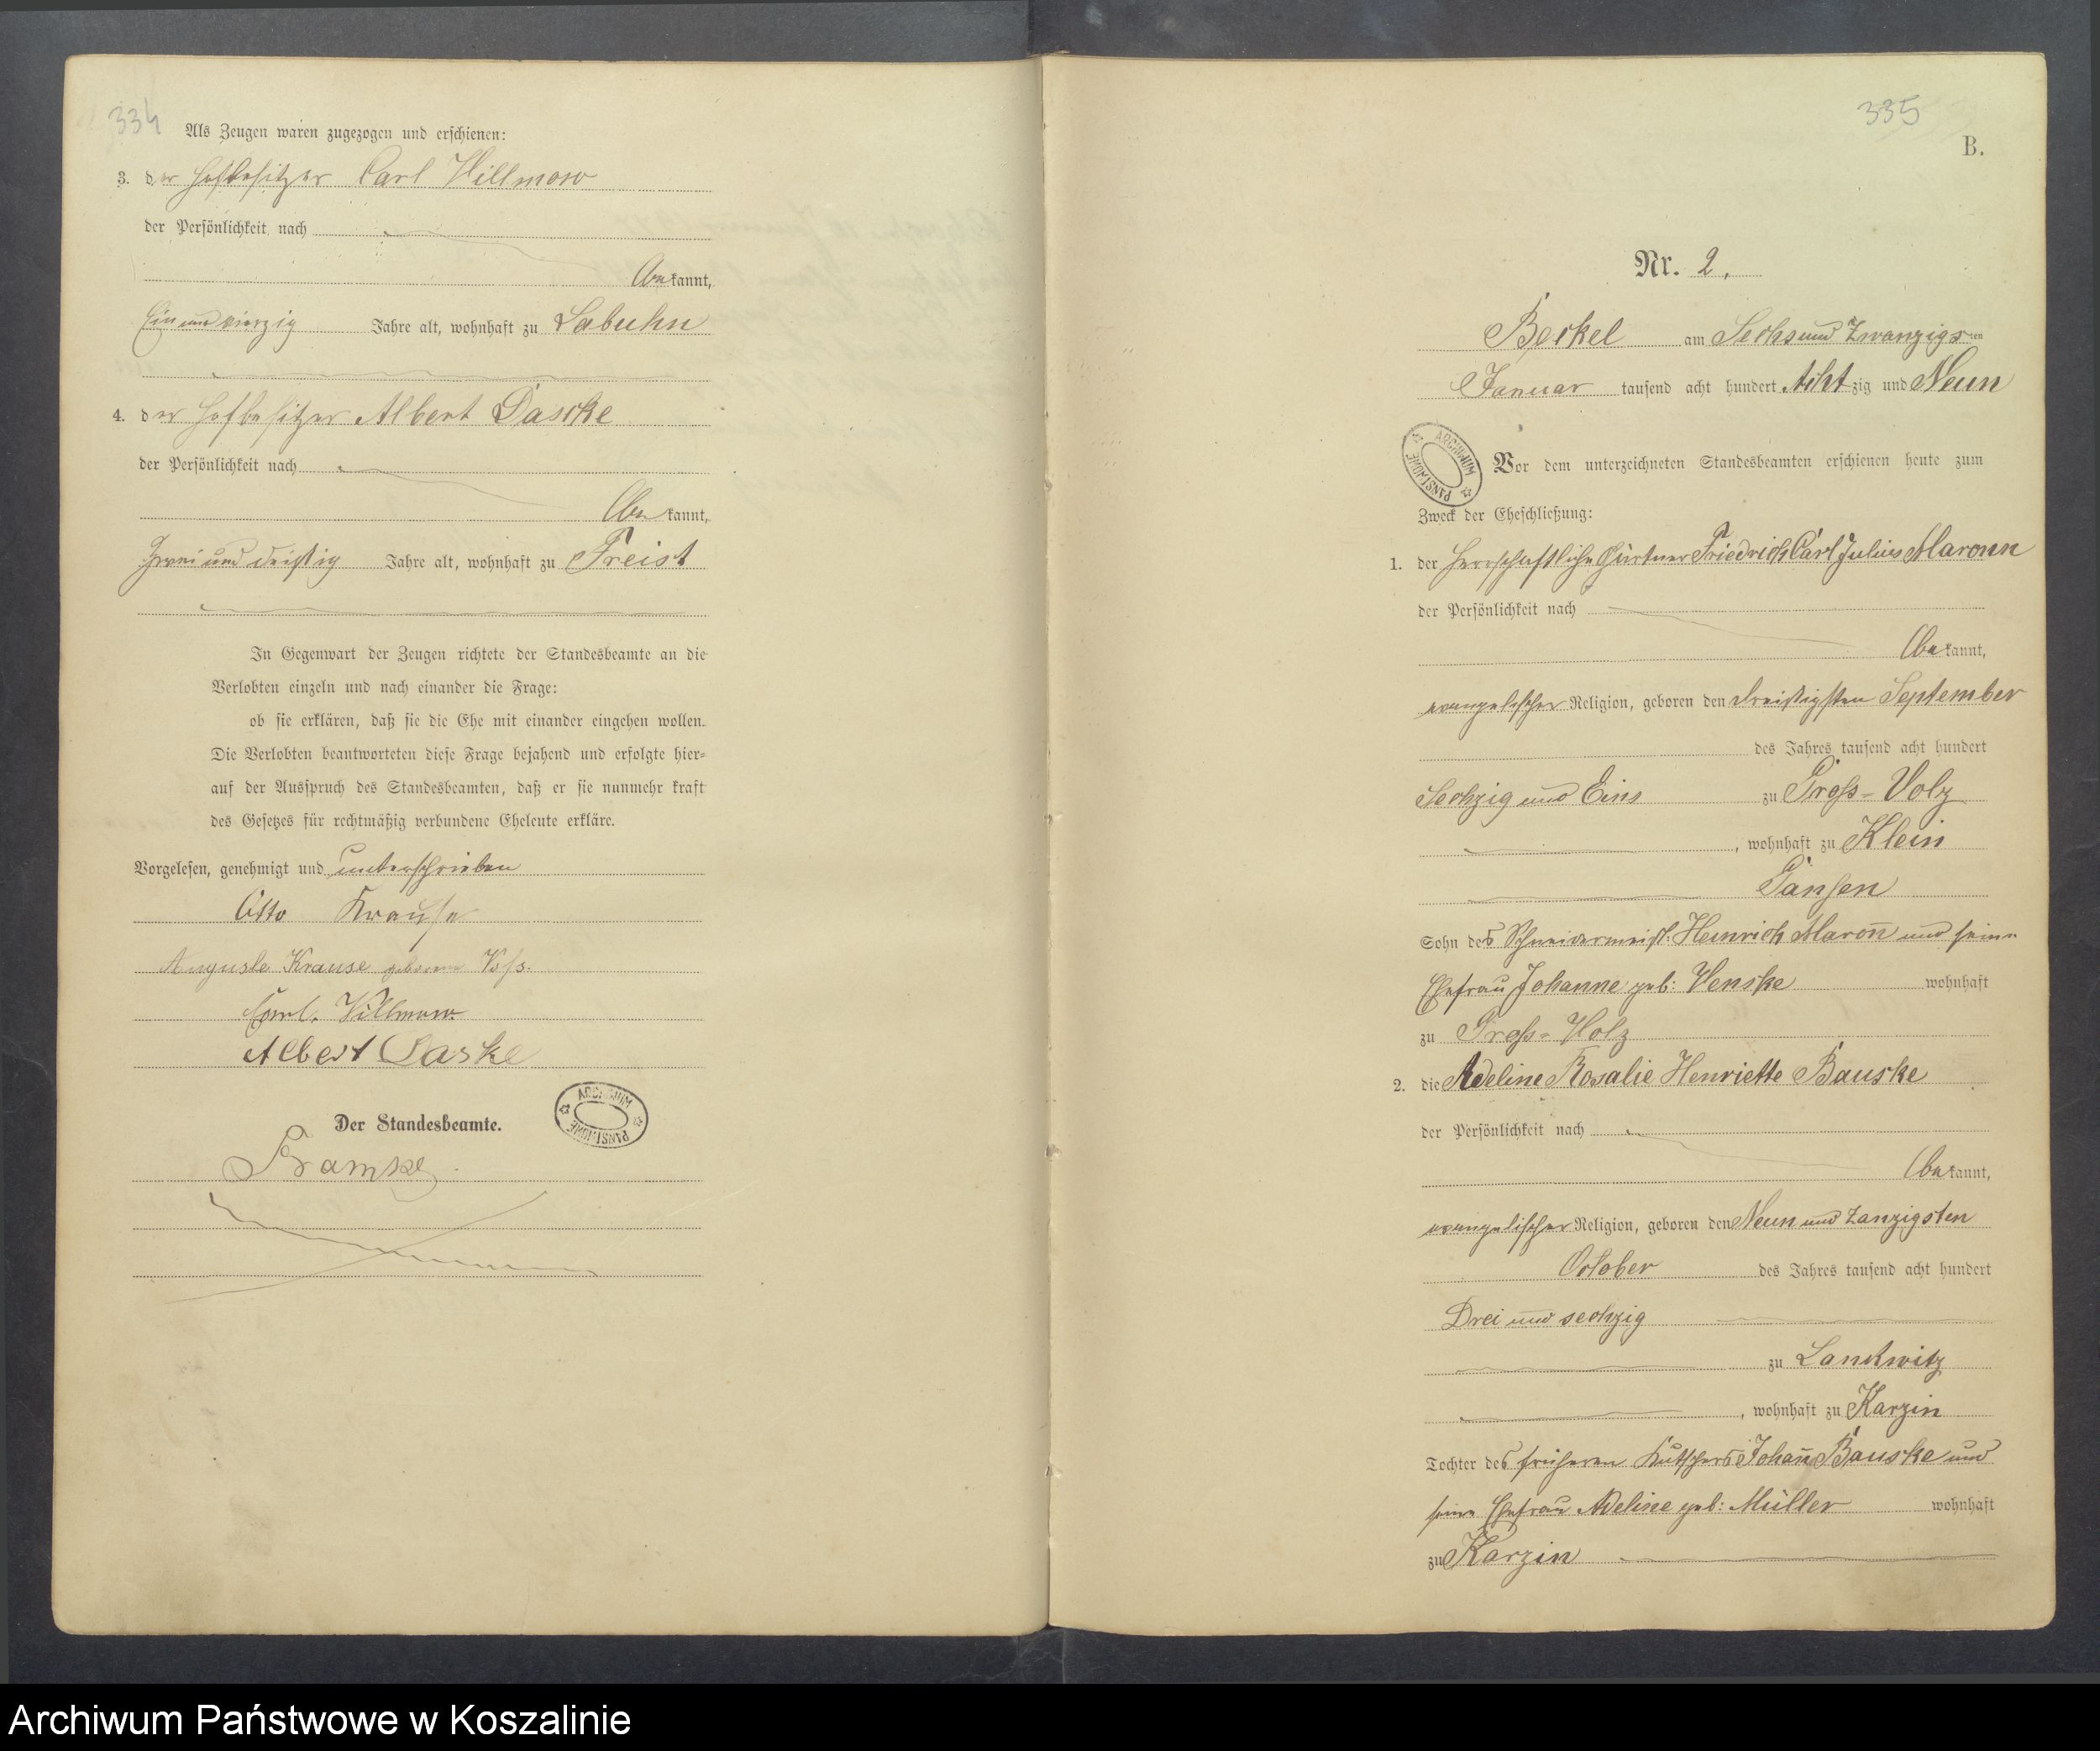 334
Als Zeugen waren zugezogen und erschienen:
3. der Hofbesitzer Carl Villmow
der Persönlichkeit nach
bekannt,
Ein und vierzig Jahre alt, wohnhaft zu Labuhn
4. der Hofbesitzer Albert Dascke
der Persönlichkeit nach
bekannt,
Zwei und dreißig Jahre alt, wohnhaft zu Freist
In Gegenwart der Zeugen richtete der Standesbeamte an die
Verlobten einzeln und nach einander die Frage:
ob sie erklären, daß sie die Ehe mit einander eingehen wollen.
Die Verlobten beantworteten diese Frage bejahend und erfolgte hier-
auf der Ausspruch des Standesbeamten, daß er sie nunmehr kraft
des Gesetzes für rechtmäßig verbundene Eheleute erkläre.
Vorgelesen, genehmigt und unterschrieben
Otto Krause
Auguste Krause geborene Voß.
Carl Villmow
Albert Daske
Der Standesbeamte.
Bramke
ARCHIWUM PAŃSTWOWE
335
B.
Nr. 2.
Beckel am Sechsund Zwanzigsten
Januar tausend acht hundert Achtzig und Neun
ARCHIWUM PAŃSTWOWE
Vor dem unterzeichneten Standesbeamten erschienen heute zum
Zweck der Eheschließung:
1. der herrschaftliche Gärtner Friedrich Carl Julius Maronn
der Persönlichkeit nach
bekannt,
evangelischer Religion, geboren den dreißigsten September
des Jahres tausend acht hundert
Sechzig und Eins zu Groß-Volz
, wohnhaft zu Klein
Gansen
Sohn des Schneidermeist: Heinrich Maroñ und seine
Ehefrau Johanne geb: Venske wohnhaft
zu Groß-Volz
2. die Adeline Rosalie Henriette Bauske
der Persönlichkeit nach
bekannt,
evangelischer Religion, geboren den Neun und Zanzigsten
October des Jahres tausend acht hundert
Drei und sechzig
zu Lankwitz
, wohnhaft zu Karzin
Tochter des früheren Kutschers Johañ Bauske und
seine Ehefrau Adeline geb: Müller wohnhaft
zu Karzin
Archiwum Państwowe w Koszalinie